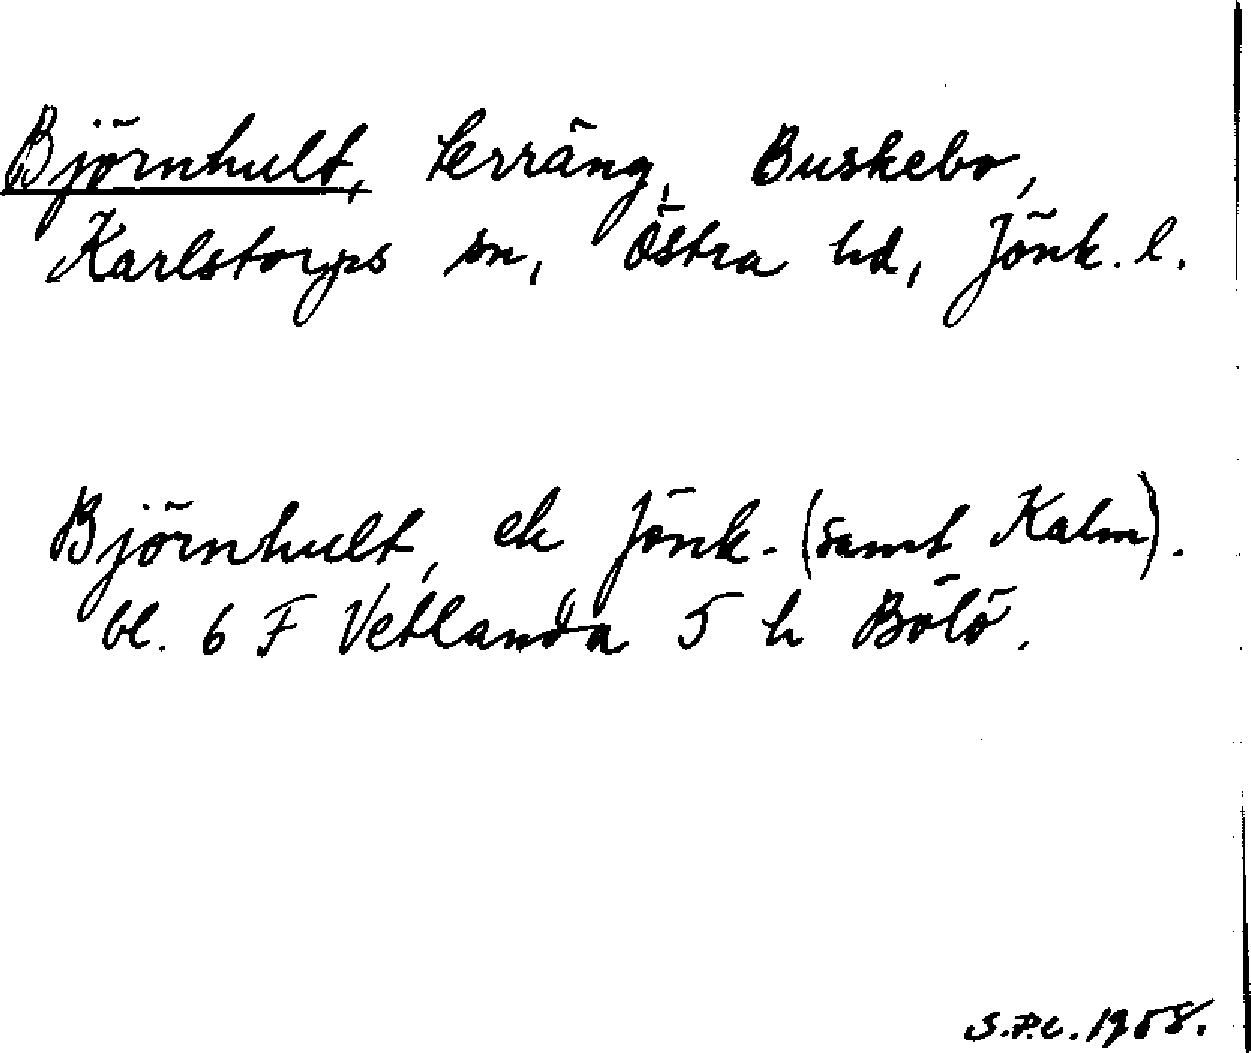 Björnhult, terräng, Buskebo,
Karlstorps sn, Östra hd, Jönk. l.
Björnhult, ek Jönk. (samt Kalm).
bl. 6 F Vetlanda 5 h Bölö.
S.P.C. 1958.